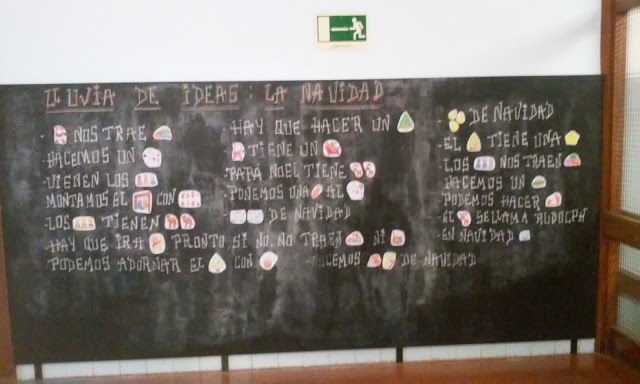 LLUVIA DE IDEAS: LA NAVIDAD
- NOS TRAE
- HACEMOS UN
- VIENEN LOS
MONTAMOS EL CON
- LOS TIENEN
- HAY QUE IR A PRONTO, SI NO, NO TRAEN NI
PODEMOS ADORNAR EL CON
- HAY QUE HACER UN
- TIENE UN
- PAPA NOEL TIENE
- PONEMOS UNA AL
- DE NAVIDAD
DE NAVIDAD
DE NAVIDAD
- EL TIENE UNA
- LOS NOS TRAEN
- HACEMOS UN
PODEMOS HACER
- EL SE LLAMA RUDOLPH
- EN NAVIDAD